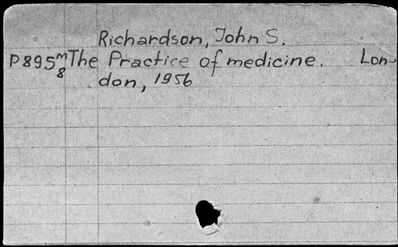 Richardson, John S.
P895 m/8 The Practice of medicine. Lon-
don, 1956